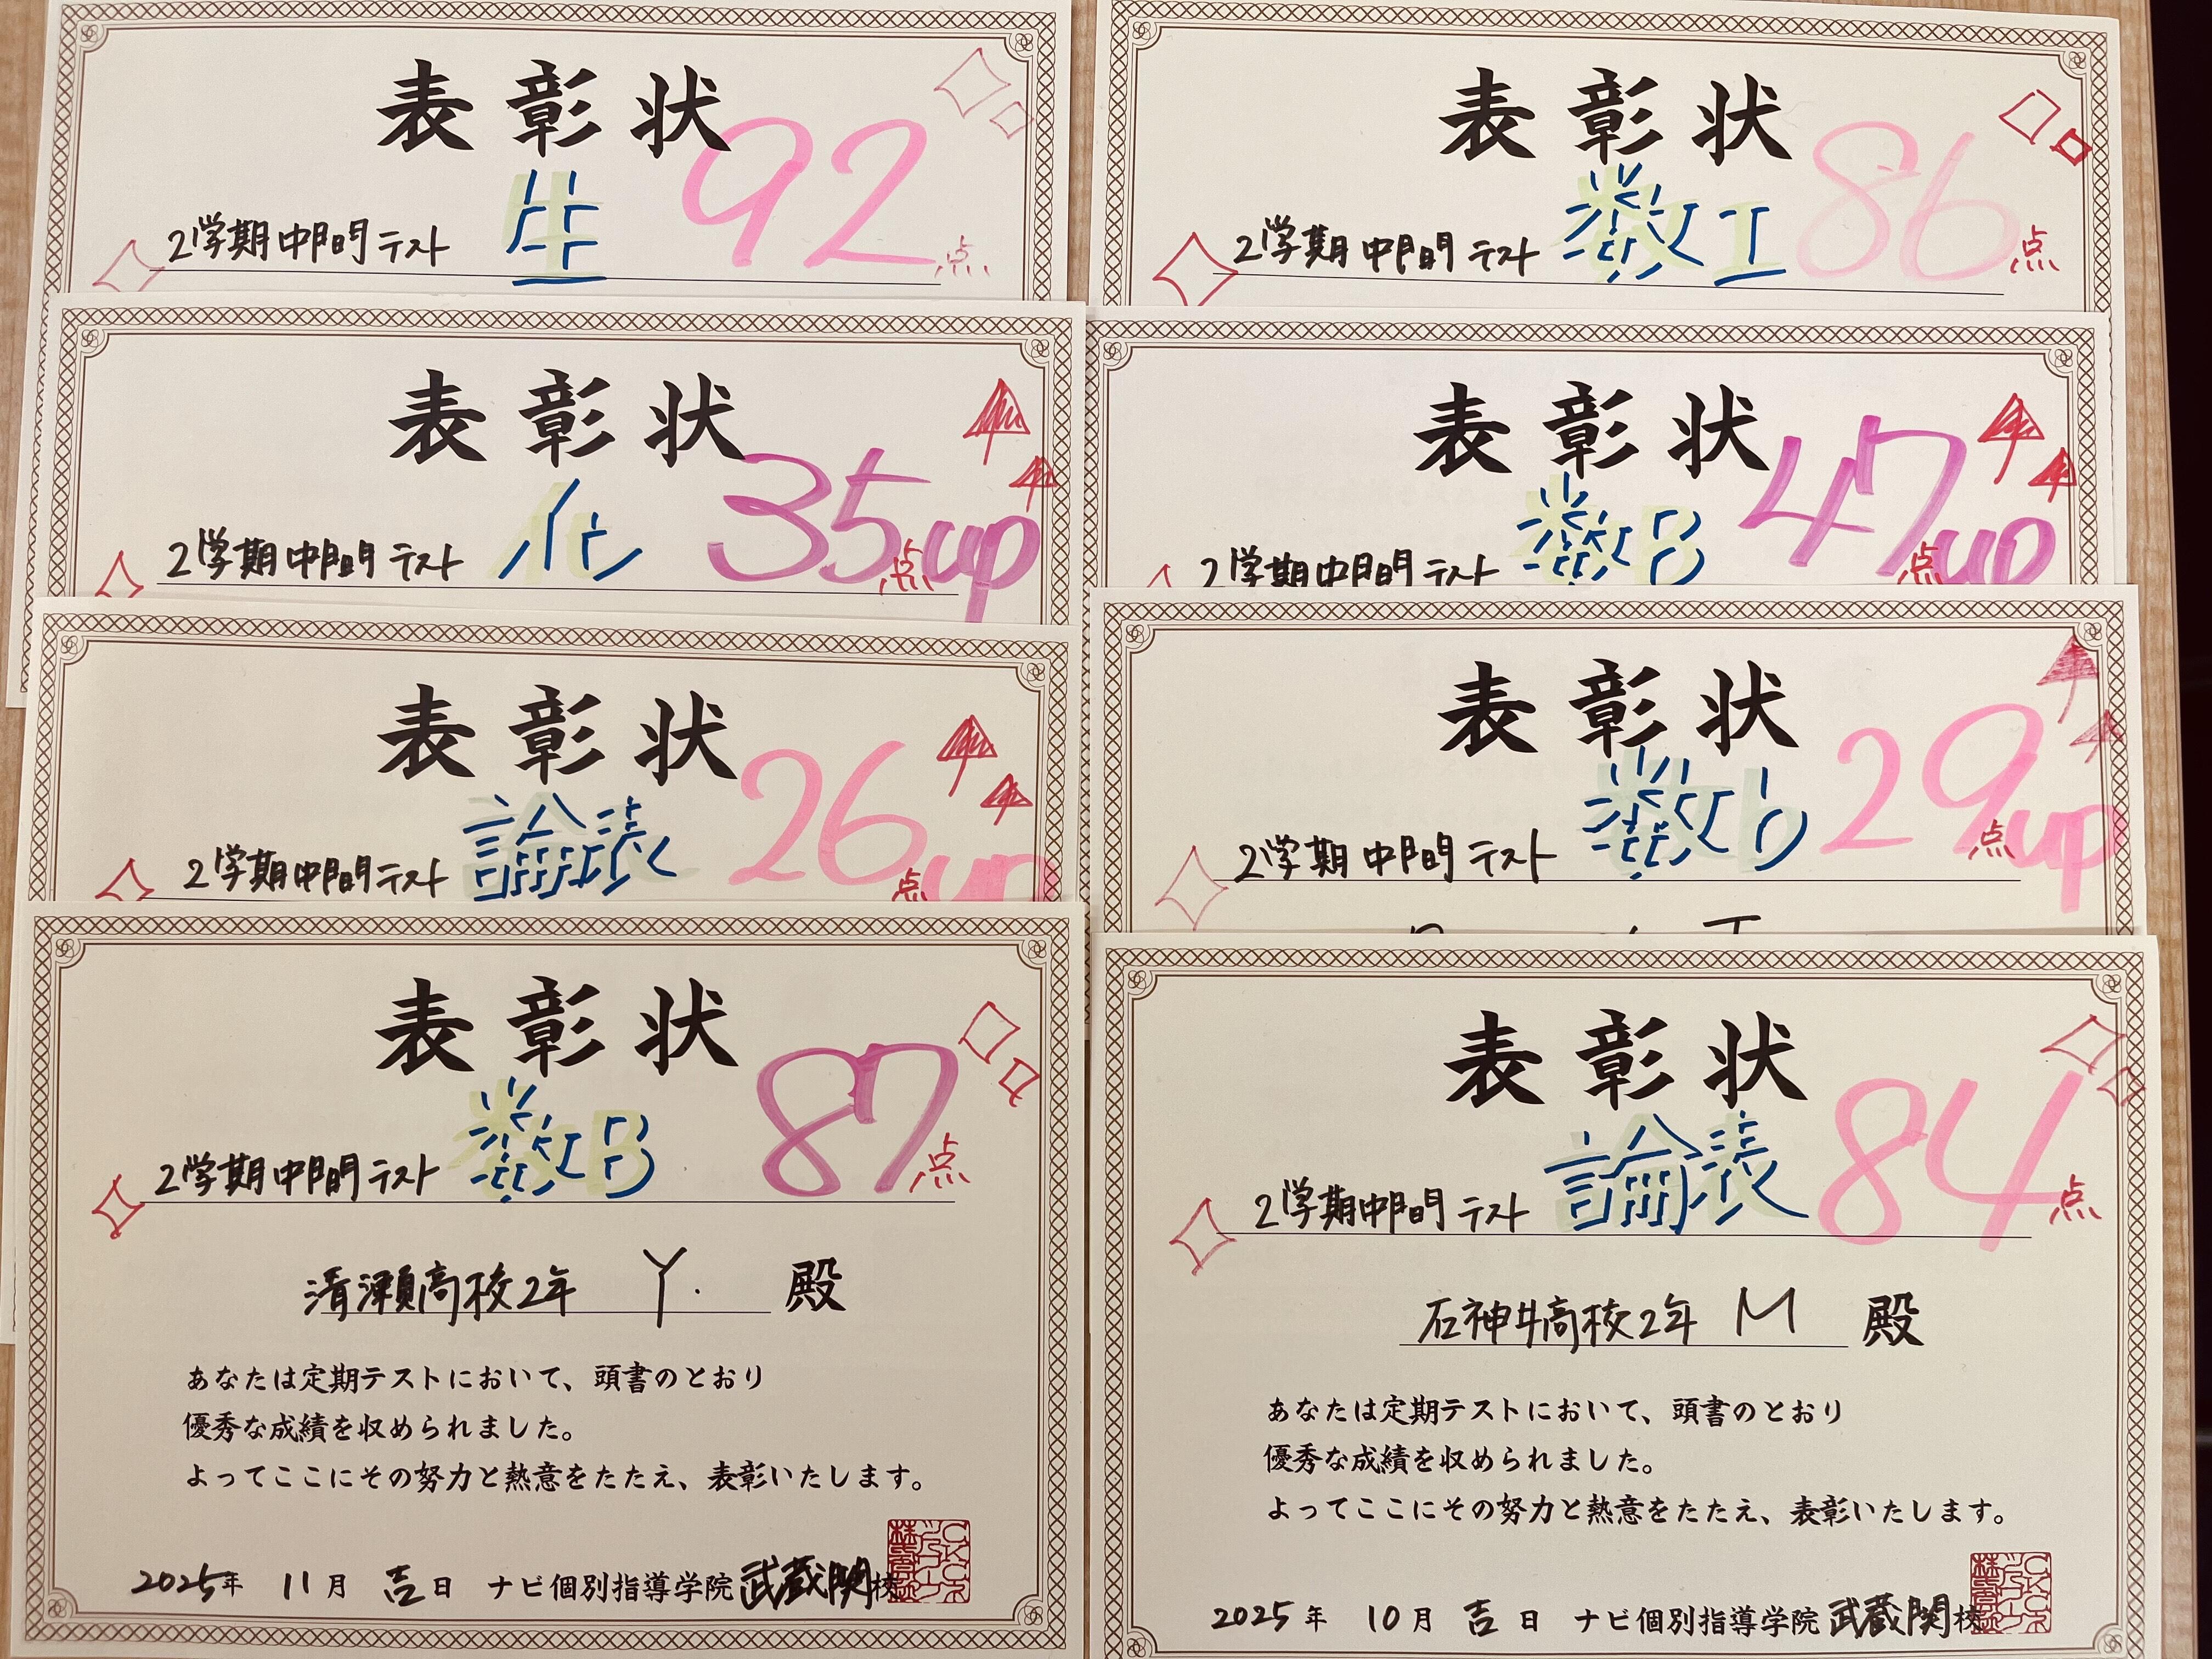 表彰状
2学期中間テスト 生 92点
表彰状
2学期中間テスト 数I 86点
表彰状
2学期中間テスト 化 35点up
表彰状
2学期中間テスト 数B 47点up
表彰状
2学期中間テスト 論表 26点up
表彰状
2学期中間テスト 29点up
表彰状
2学期中間テスト 数B 87点
清瀬高校2年 Y. 殿
あなたは定期テストにおいて、頭書のとおり
優秀な成績を収められました。
よってここにその努力と熱意をたたえ、表彰いたします。
2025年 11月 吉日 ナビ個別指導学院武蔵関校
表彰状
2学期中間テスト 論表 84点
石神井高校2年 M 殿
あなたは定期テストにおいて、頭書のとおり
優秀な成績を収められました。
よってここにその努力と熱意をたたえ、表彰いたします。
2025年 10月 吉日 ナビ個別指導学院武蔵関校